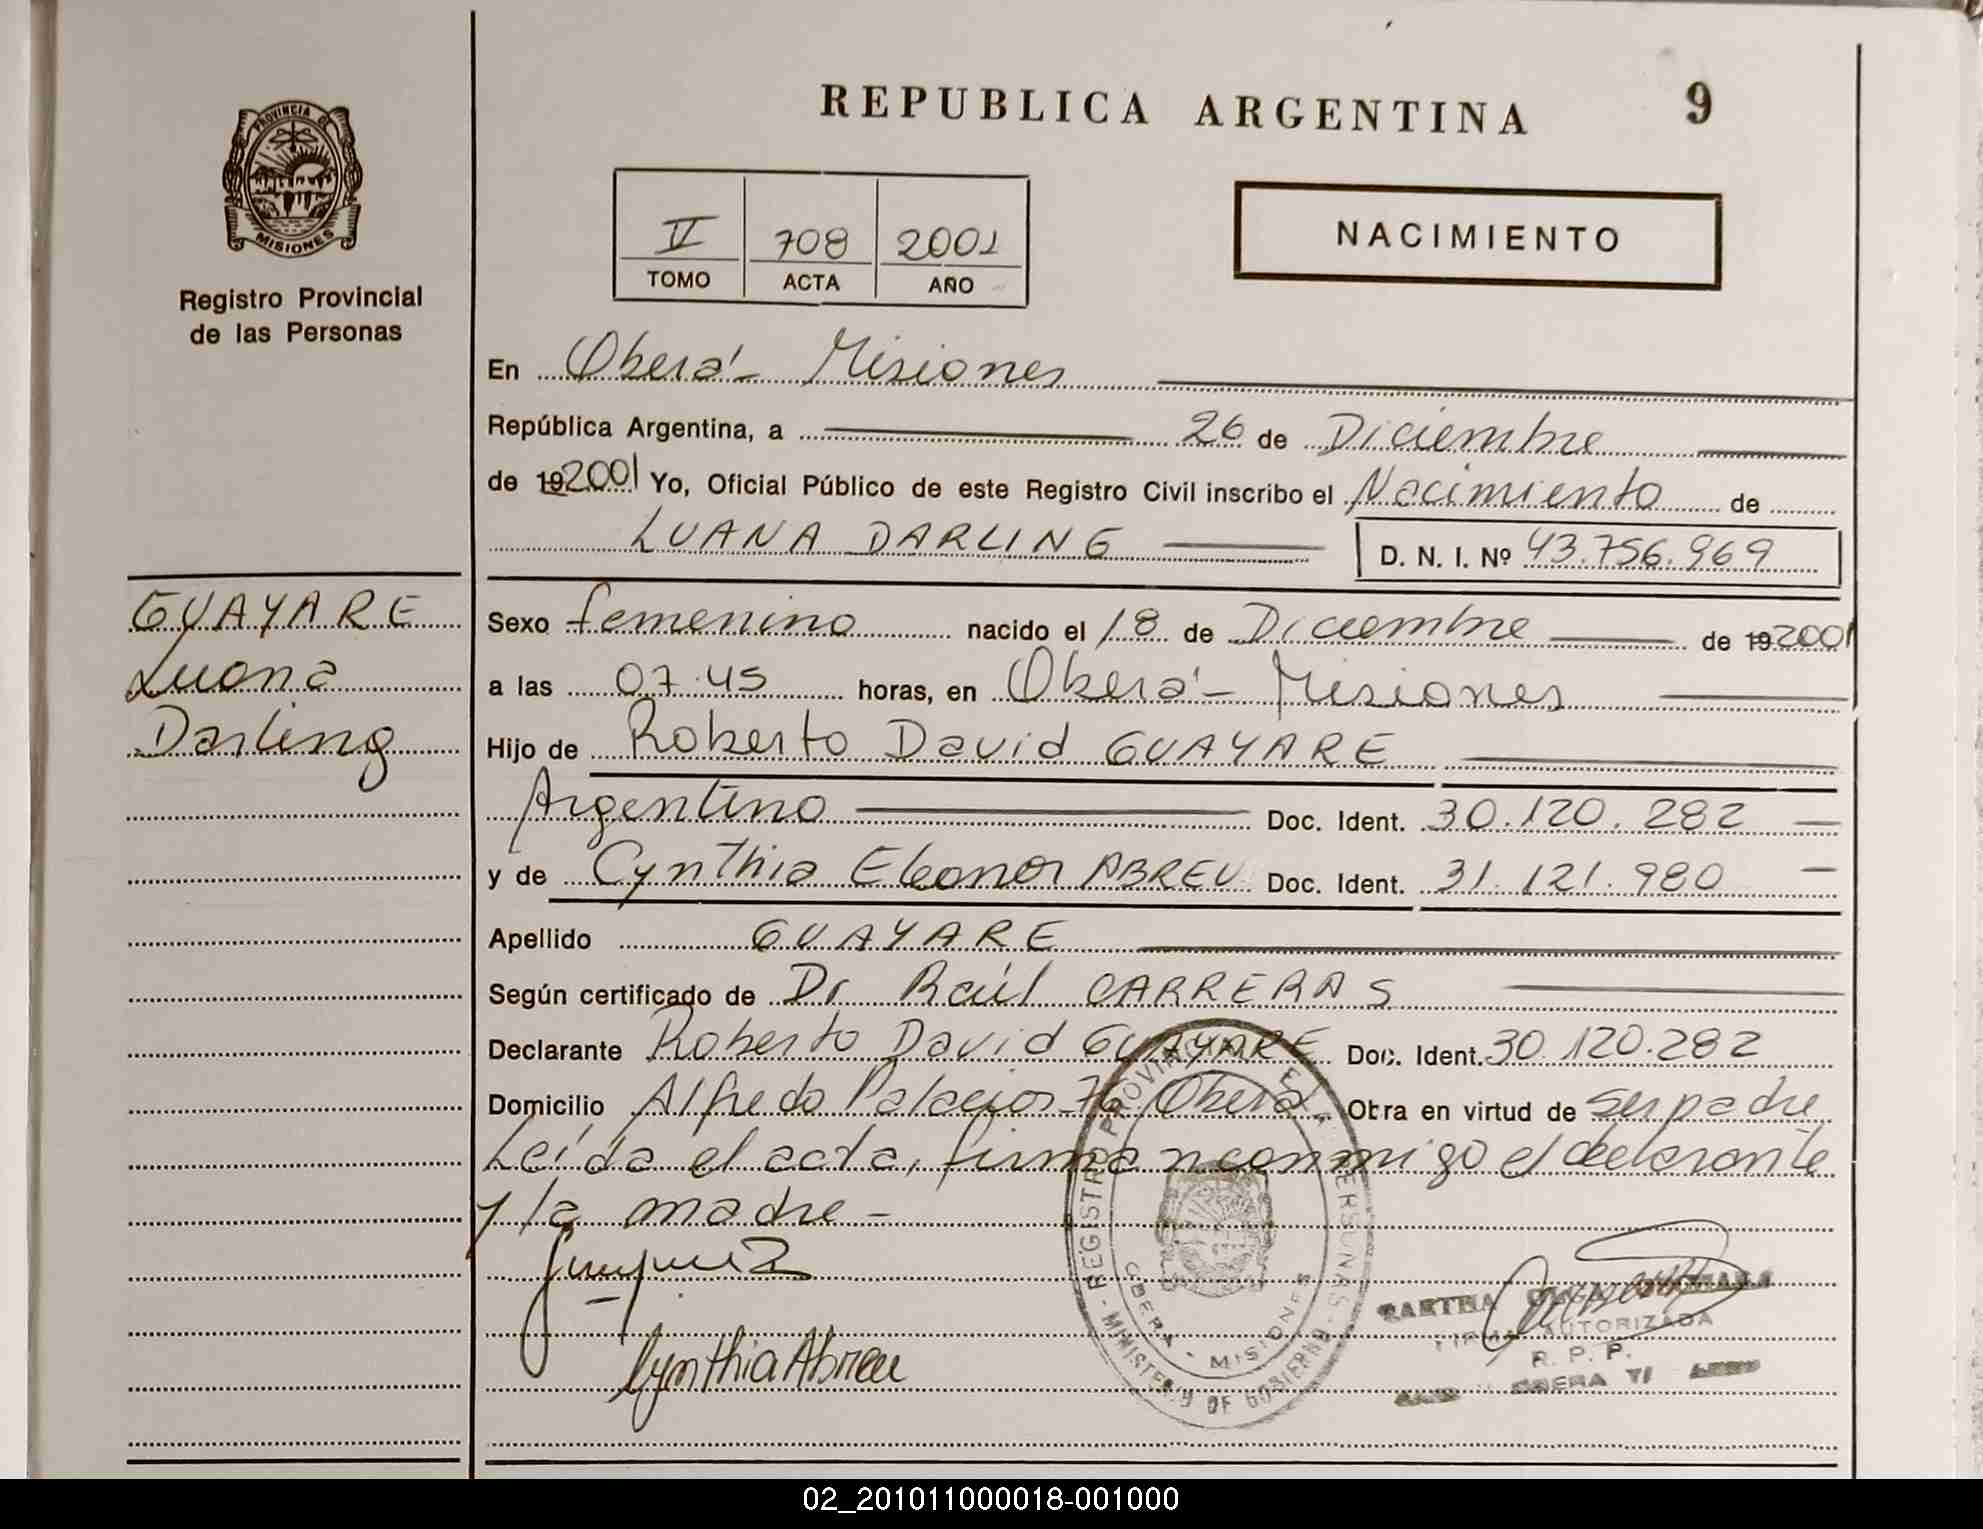 REPUBLICA ARGENTINA 9
PROVINCIA DE
MISIONES
Registro Provincial
de las Personas
V 708 2001
TOMO ACTA AÑO
NACIMIENTO
En Oberá - Misiones
República Argentina, a 26 de Diciembre
de 19 2001 Yo, Oficial Público de este Registro Civil inscribo el Nacimiento de
LUANA DARLING D. N. I. Nº 43.756.969
GUAYARE
Luana
Darling
Sexo femenino nacido el 18 de Diciembre de 19 2001
a las 07.45 horas, en Oberá - Misiones
Hijo de Roberto David GUAYARE
Argentino Doc. Ident. 30.120.282
y de Cynthia Eleonor ABREU Doc. Ident. 31.121.980
Apellido GUAYARE
Según certificado de Dr Raúl CARRERAS
Declarante Roberto David GUAYARE Doc. Ident. 30.120.282
Domicilio Alfredo Palacios 76 Oberá Obra en virtud de ser padre
Leída el acta, firman conmigo el declarante
y la madre -
Cynthia Abreu
REGISTRO PROVINCIAL DE LAS PERSONAS - MINISTERIO DE GOBIERNO
OBERA - MISIONES
FIRMA AUTORIZADA
R. P. P.
OBERA
02_201011000018-001000